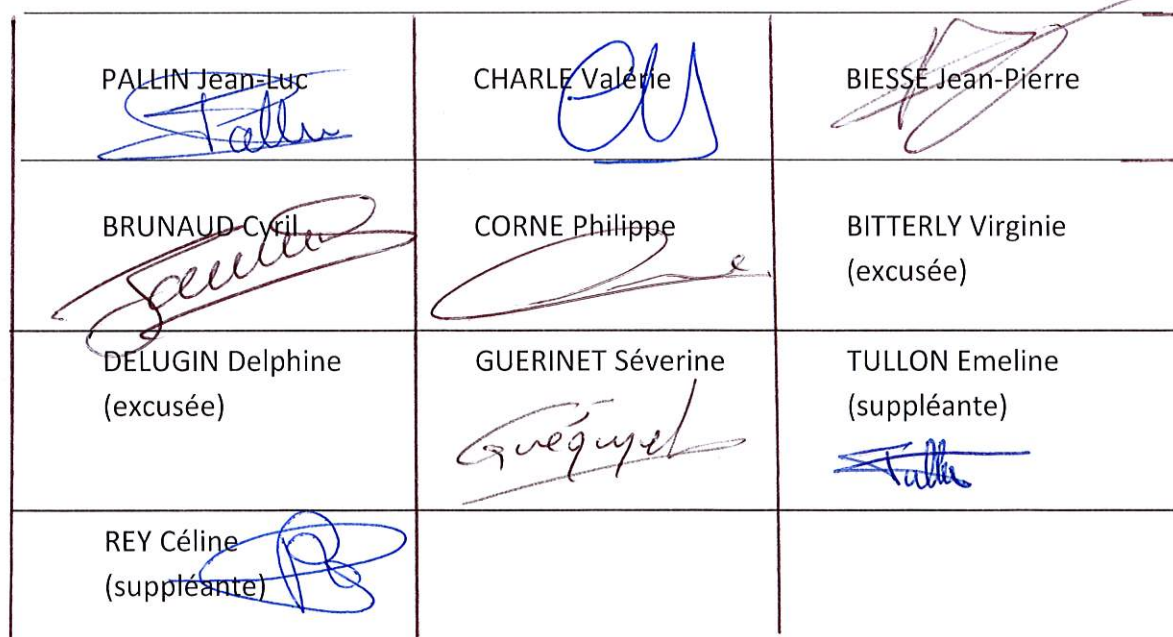 PALLIN Jean-Luc
CHARLE Valérie
BIESSE Jean-Pierre
BRUNAUD Cyril
CORNE Philippe
BITTERLY Virginie
(excusée)
DELUGIN Delphine
(excusée)
GUERINET Séverine
TULLON Emeline
(suppléante)
REY Céline
(suppléante)